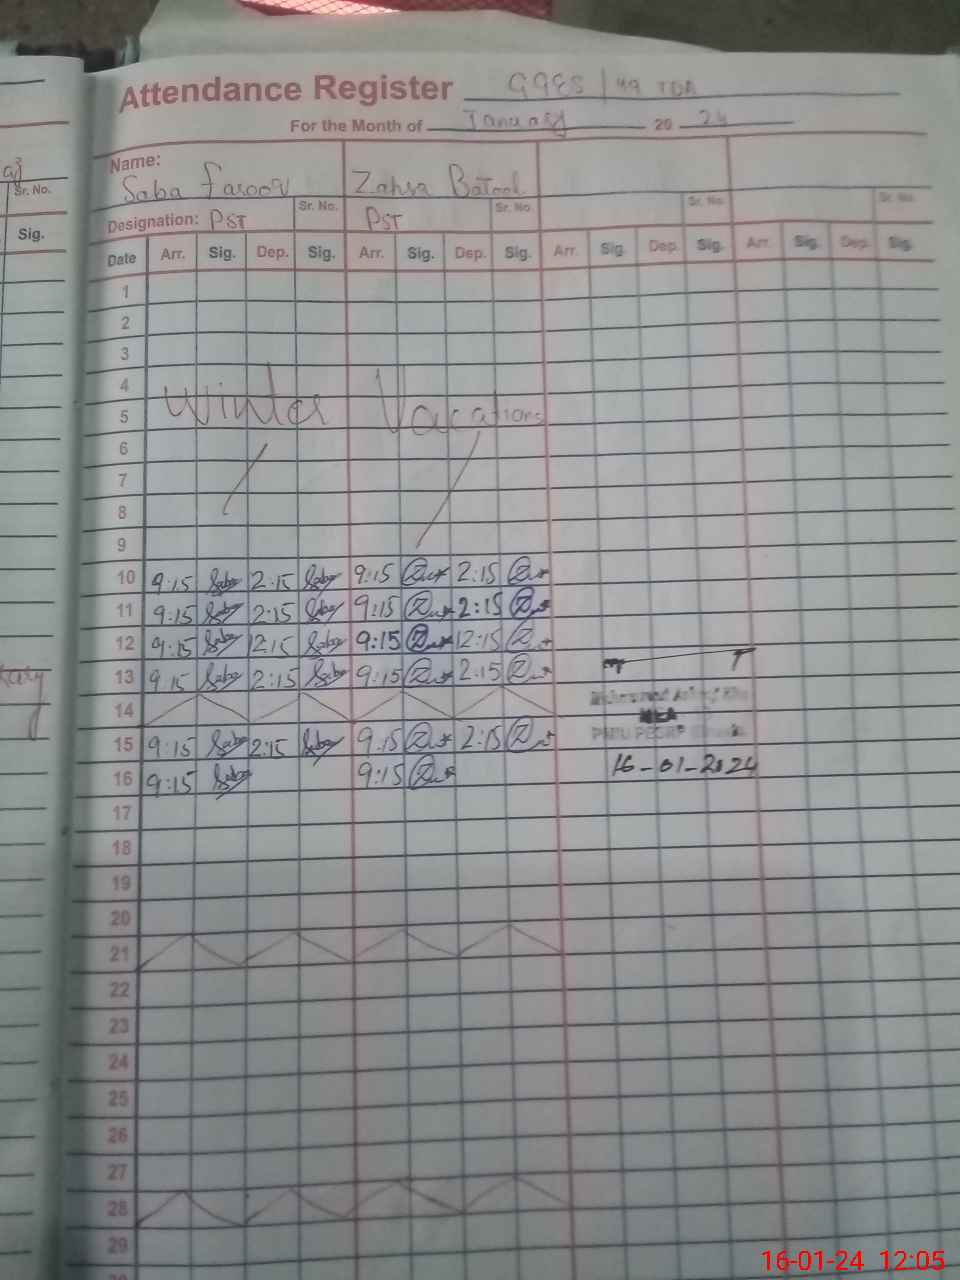 Attendance Register GGES / 49 TDA
For the Month of January 20 24
Name:
Saba Farooq Zahra Batool
Sr. No. Sr. No. Sr. No. Sr. No. Sr. No.
Designation: PST PST
Sig.
Date Arr. Sig. Dep. Sig. Arr. Sig. Dep. Sig. Arr. Sig. Dep. Sig. Arr. Sig. Dep. Sig.
1
2
3
4
Winter Vacations
5
6
7
8
9
10 9:15 Saba 2:15 Saba 9:15 2:15
11 9:15 Saba 2:15 Saba 9:15 2:15
12 9:15 Saba 12:15 Saba 9:15 12:15
13 9:15 Saba 2:15 Saba 9:15 2:15
14
15 9:15 Saba 2:15 Saba 9:15 2:15
16 9:15 Saba 9:15 16-01-2024
17
18
19
20
21
22
23
24
25
26
27
28
29
16-01-24 12:05